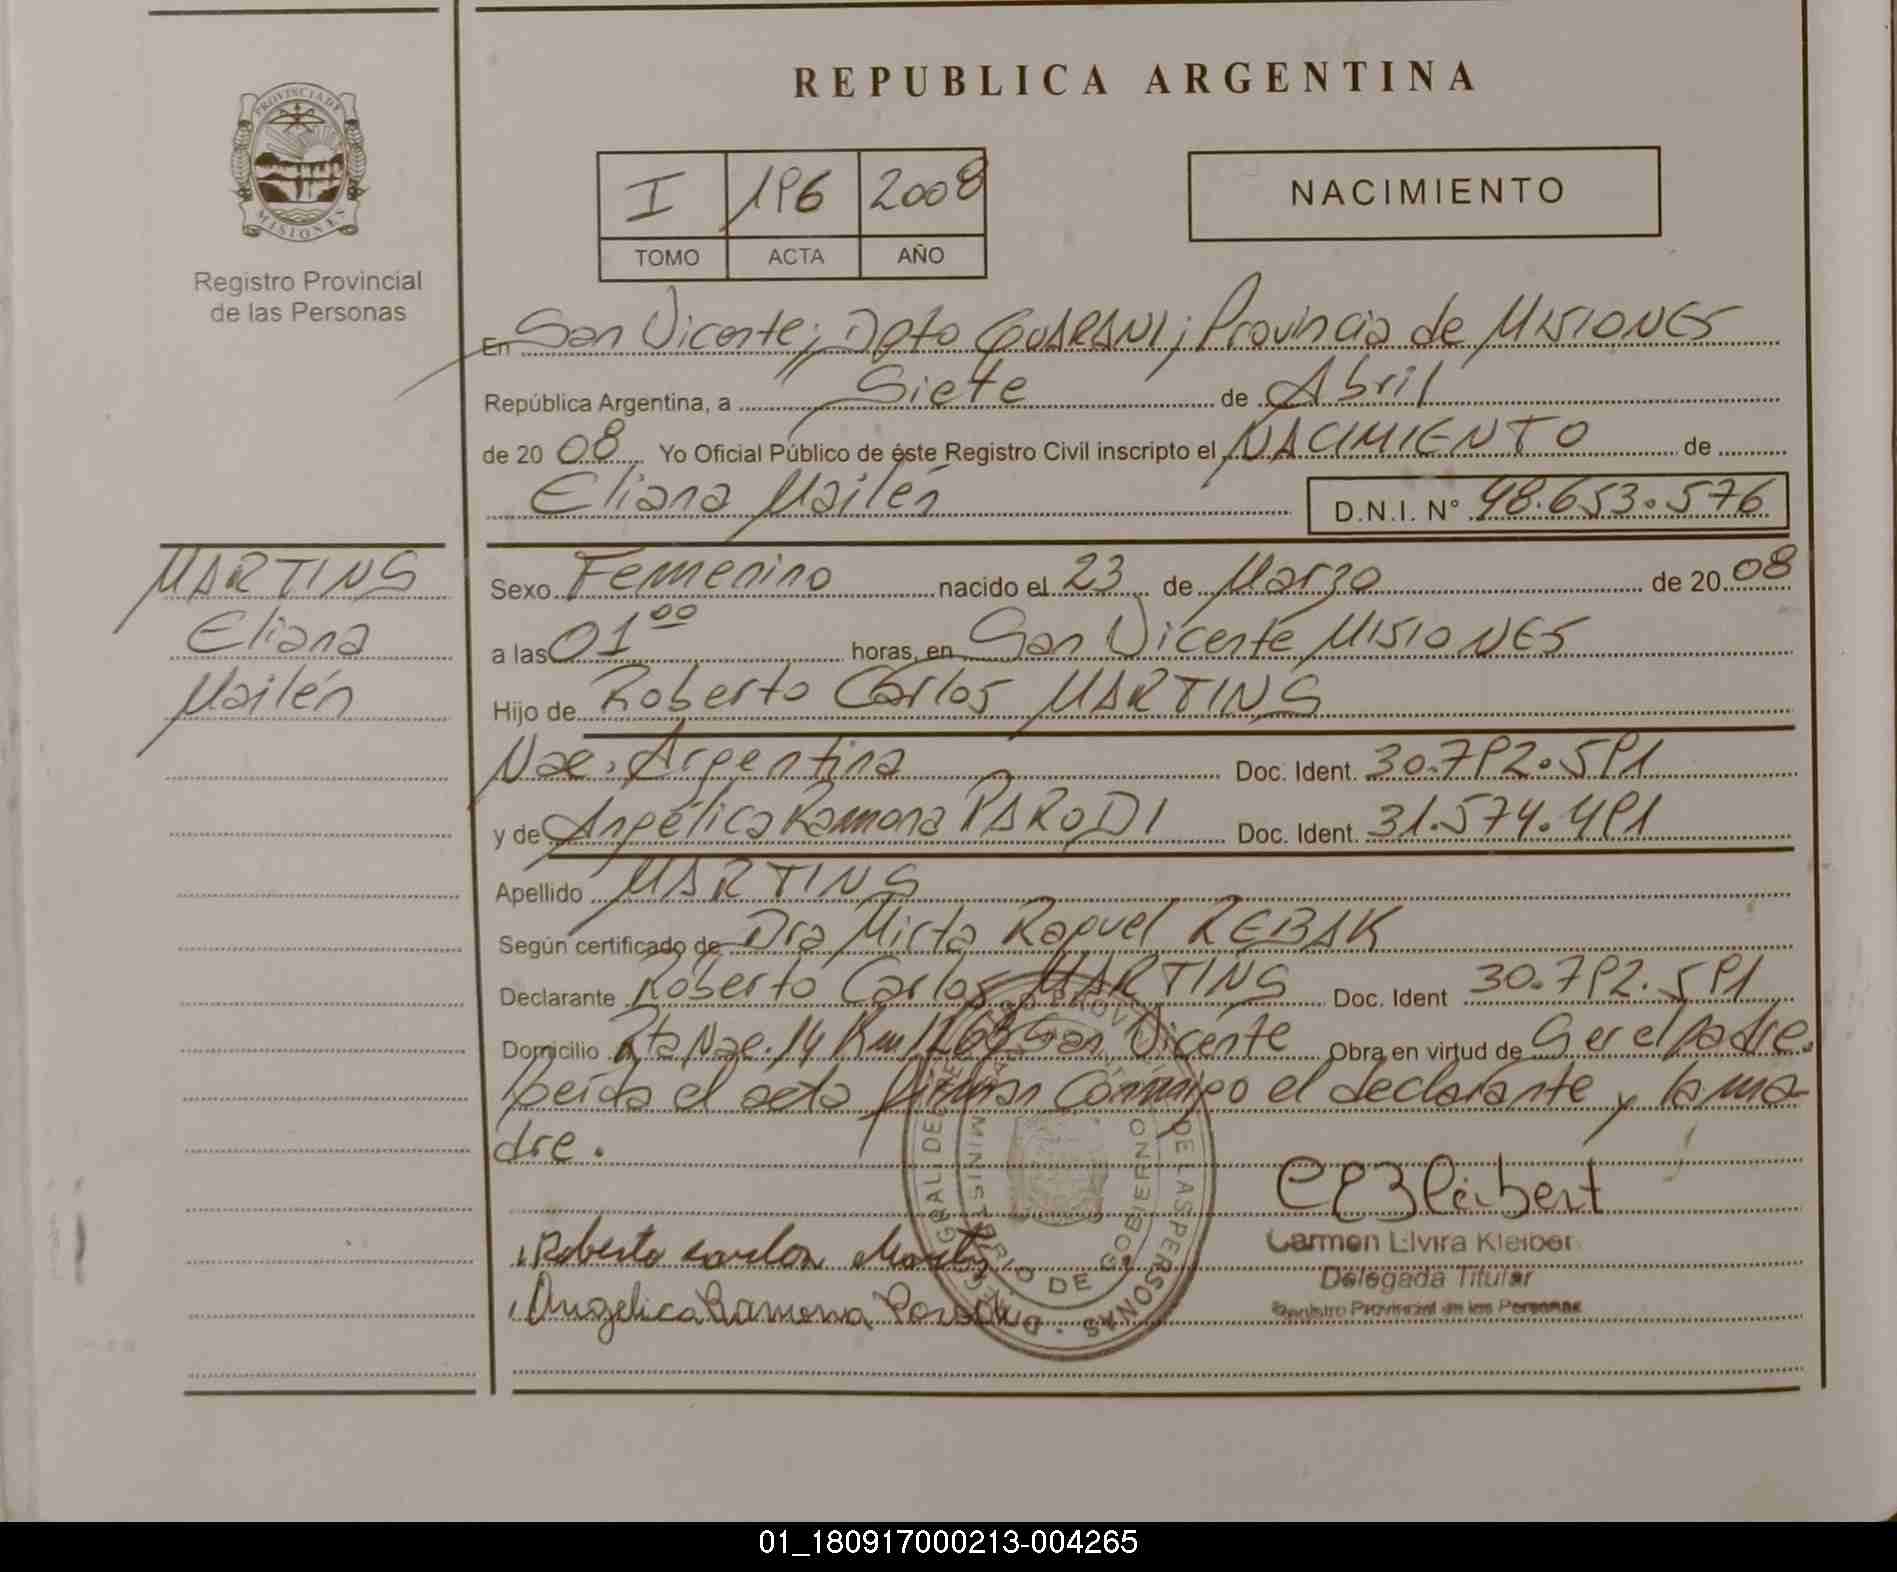 PROVINCIA DE
MISIONES
Registro Provincial
de las Personas
MARTINS
Eliana
Mailén
REPUBLICA ARGENTINA
I 196 2008
TOMO ACTA AÑO
NACIMIENTO
En San Vicente; Dpto GUARANI; Provincia de MISIONES
República Argentina, a Siete de Abril
de 20 08 Yo Oficial Público de éste Registro Civil inscripto el NACIMIENTO de
Eliana Mailén D.N.I. N° 48.653.576
Sexo Femenino nacido el 23 de Marzo de 20 08
a las 01 00 horas, en San Vicente MISIONES
Hijo de Roberto Carlos MARTINS
Nac. Argentina Doc. Ident. 30.792.591
y de Angélica Ramona PARODI Doc. Ident. 31.574.491
Apellido MARTINS
Según certificado de Dra Mirta Raquel REBAK
Declarante Roberto Carlos MARTINS Doc. Ident 30.792.591
Domicilio Rta Nac. 14 Km 1268 San Vicente Obra en virtud de Ser el padre.
Leída el acta firman conmigo el declarante y la ma-
dre.
Roberto carlos Martins
Angelica Ramona Parodi
Carmen Elvira Kleiber
Delegada Titular
Registro Provincial de las Personas
MINISTERIO DE GOBIERNO
DE LAS PERSONAS
01_180917000213-004265